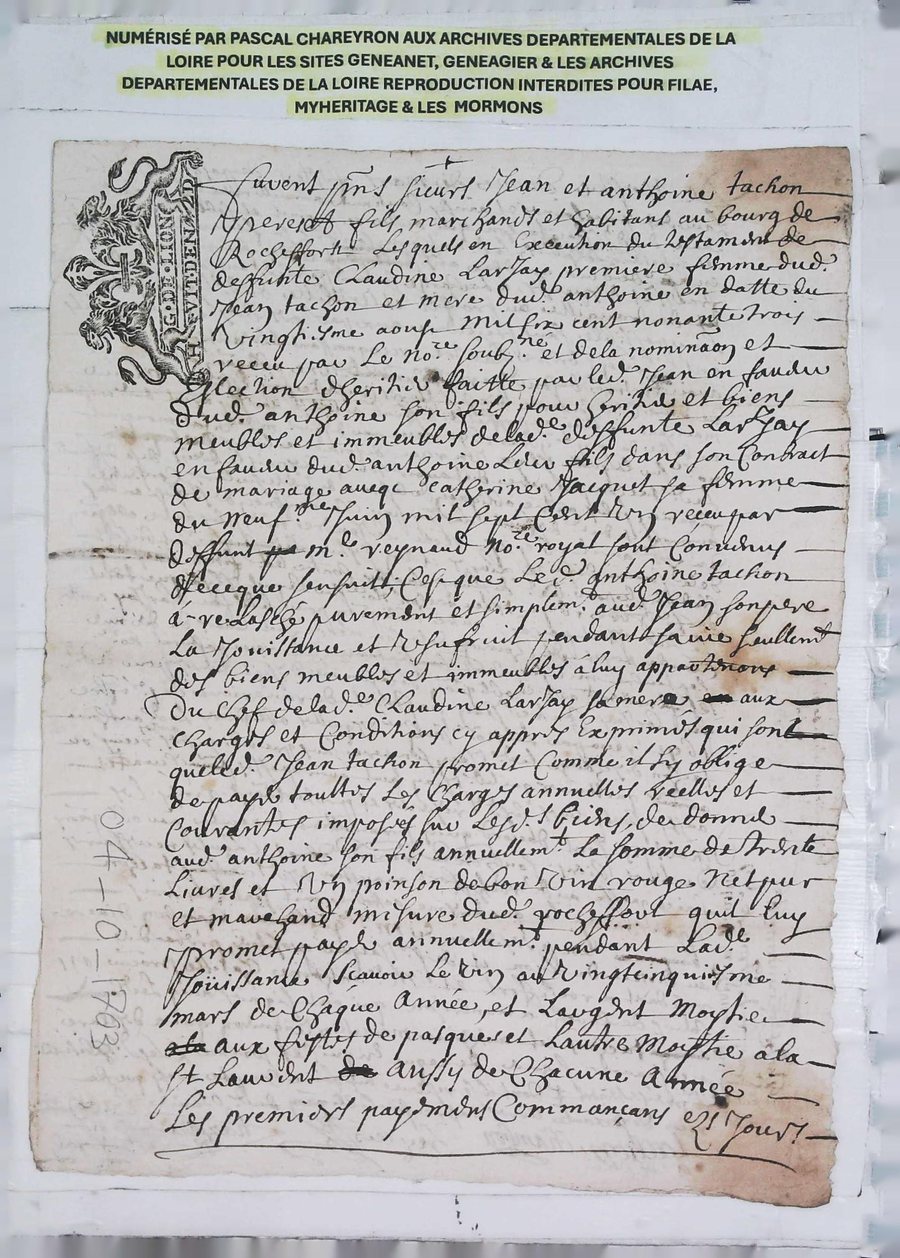 NUMÉRISÉ PAR PASCAL CHAREYRON AUX ARCHIVES DEPARTEMENTALES DE LA
LOIRE POUR LES SITES GENEANET, GENEAGIER & LES ARCHIVES
DEPARTEMENTALES DE LA LOIRE REPRODUCTION INTERDITES POUR FILAE,
MYHERITAGE & LES MORMONS
G·DE·LION
HVIT·DEN 2 D
furent pns sieurs Jean et anthoine tachon
pere et fils marchands et habitant au bourg de
Rocheffort Lesquels en Execution du testament de
deffunte Claudine LarJay premiere femme dud.
Jean tachon et mere dud. anthoine en datte du
vingtiesme aoust mil six cent nonante trois
receu par Le nore soubz.né et de la nominaon et
Eslection dheritier faitte par led. Jean en faveur
dud. anthoine son fils pour heritier et biens
meubles et immeubles de lad.e deffunte LarJay
en faveur dud. anthoine Leur fils dans son Contract
de mariage aveqc Catherine Jacquet sa femme
du neuf.me Juin mil sept Cent un receu par
deffunt m.e reynaud no.re royal sont Convenus
de ceque sensuitt, Cest que Led. anthoine tachon
à relasché purement et simplem.t aud. Jean son pere
La Jouissance et usufruit pendant sa vie seullemt
des biens meubles et immeubles à luy appartenans
Du Chef de lad.e Claudine LarJay sa mere aux
charges et Conditions cy appres Exprimés qui sont
que led. Jean tachon promet Comme il sy oblige
de payer touttes Les Charges annuelles reelles et
Courantes imposés sur Lesd.s biens, de donner
aud. anthoine son fils annuellem.t La somme de trente
Livres et un poinson de bon vin rouge net pur
et marchand mesure dud. rocheffort quil luy
promet payer annuellem.t pendant Lad.e
Joüissance scavoir Le vin au vingtcinquiesme
mars de Chaque Année, et Largent Moytie
aux festes de pasques et Lautre Moytie a la
st Laurent Aussy de Chacune Année
Les premiers payemens Commançans
04-10-1703